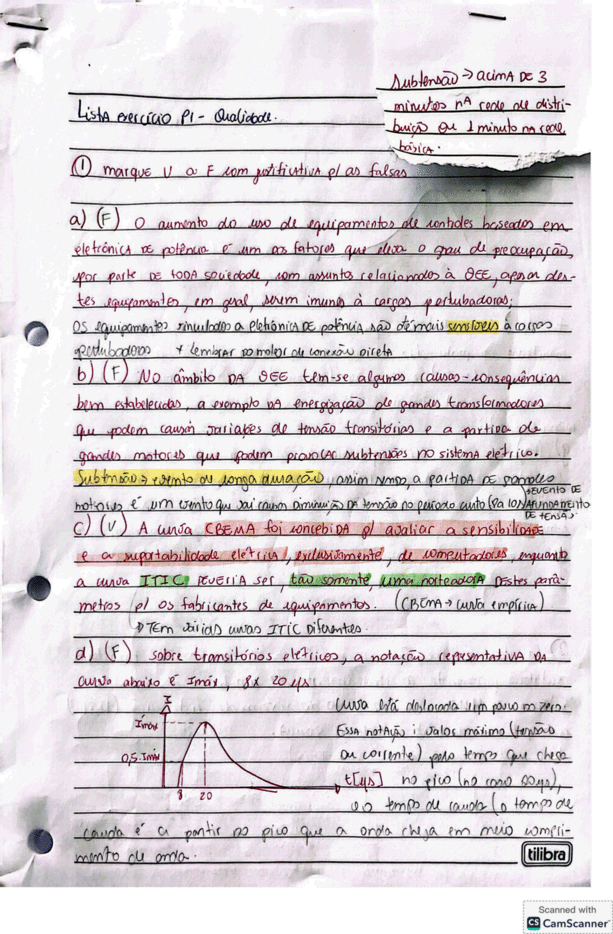 Subtensão → acima DE 3
minutos na rede de distri-
buição ou 1 minuto na rede
básica.
Lista exercício P1 - Qualidade.
① marque V ou F com justificativa p/ as falsas
a) (F) O aumento do uso de equipamentos de controles baseados em
eletrônica DE potência é um dos fatores que eleva o grau de preocupação,
por parte DE TODA sociedade, com assuntos relacionados à QEE, apesar des-
tes equipamentos, em geral, serem imunes à cargas perturbadoras;
OS equipamentos vinculados a eletrônica DE potência são os mais sensíveis à cargas
perturbadoras + lembrar do motor de conexão direta
b) (F) No âmbito DA QEE tem-se algumas causas-consequências
bem estabelecidas, a exemplo DA energização de grandes transformadores
que podem causar variações de tensão transitórias e a partida de
grandes motores que podem provocar subtensões no sistema elétrico.
Subtensão → evento de longa duração, assim sendo, a partida DE grandes
motores é um evento que vai causar diminuição da tensão no período curto (Pa 10)
→ EVENTO DE
AFUNDAMENTO
DE TENSÃO
c) (V) A curva CBEMA foi concebida p/ avaliar a sensibilidade
e a suportabilidade elétrica, exclusivamente, de computadores, enquanto
a curva ITIC deveria ser, tão somente, uma norteadora destes parâ-
metros p/ os fabricantes de equipamentos. (CBEMA → curva empírica)
↳ TEM várias curvas ITIC Diferentes.
d) (F) Sobre transitórios elétricos, a notação representativa DA
curva abaixo é Imáx, 8 x 20 μs
I
Imáx
0,5.Imáx
8 20
t[μs]
Curva está deslocada um pouco do zero.
Essa notação é valor máximo (tensão
ou corrente) pelo tempo que chega
no pico (no caso 20μs),
e o tempo de cauda (o tempo de
cauda é a partir do pico que a onda chega em meio compri-
mento de onda.
tilibra
Scanned with
CS CamScanner